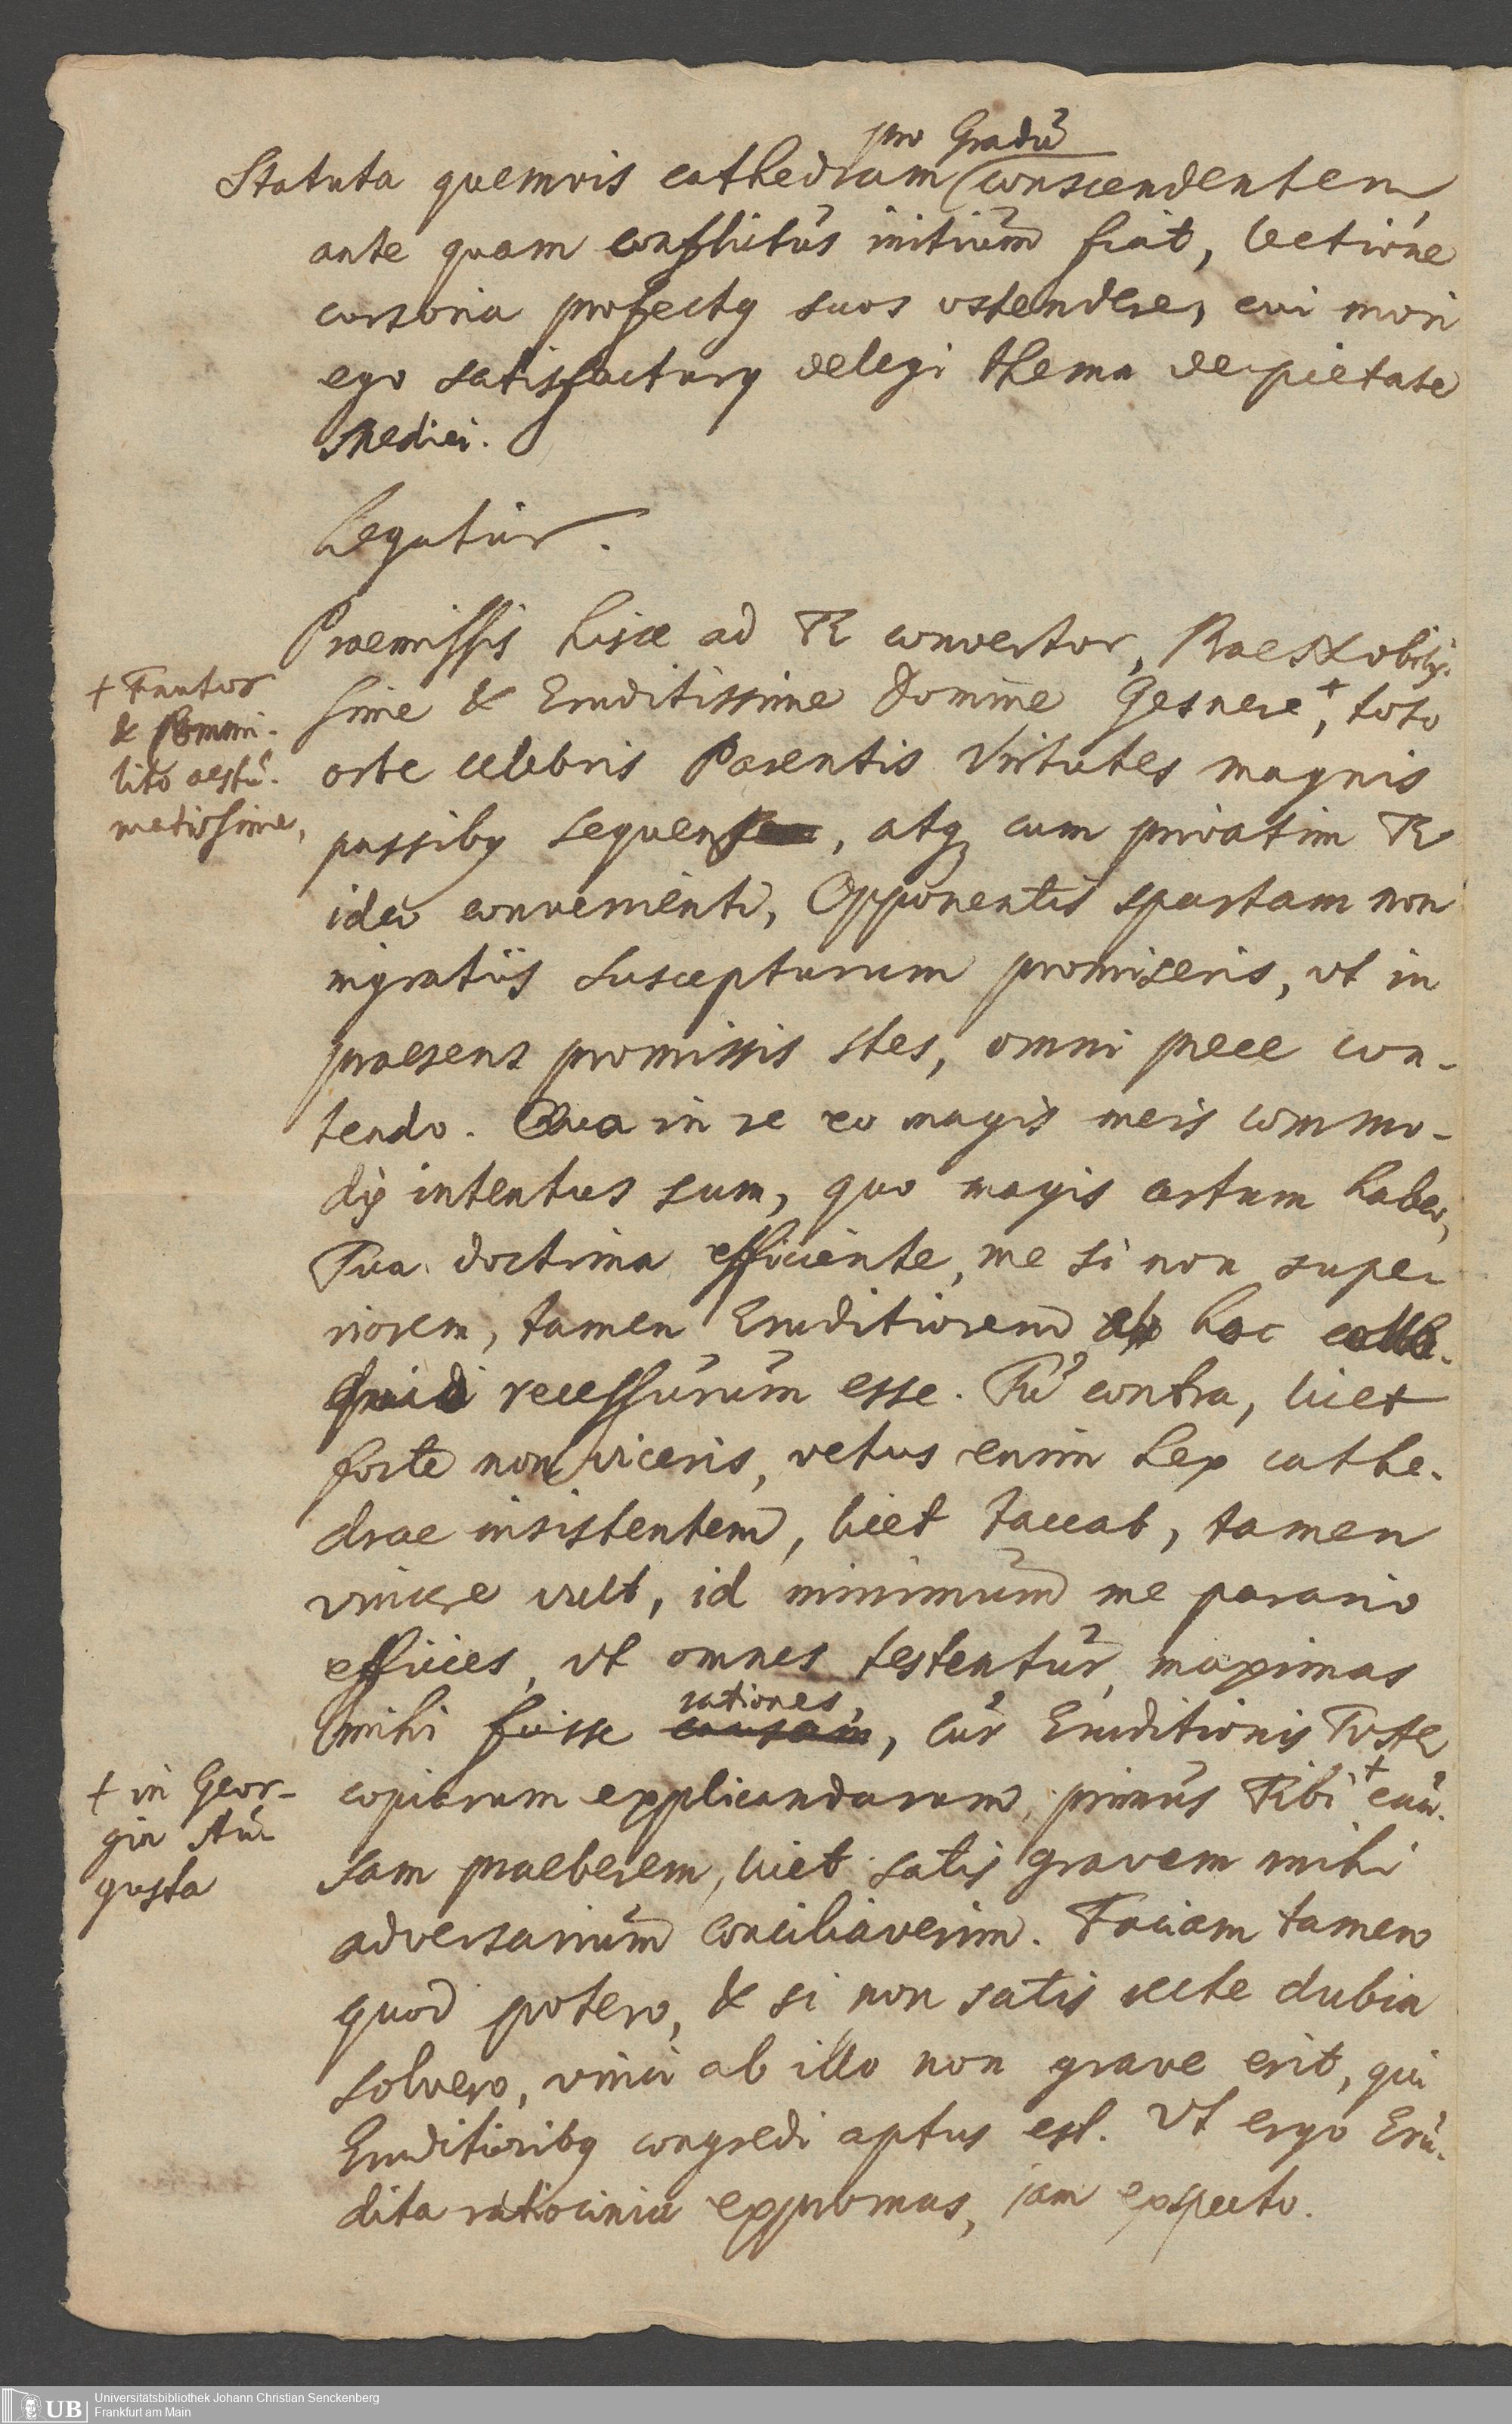 pro Gradu
Statuta quemvis cathedram conscendentem
ante quam conflictus initium fiat, lectione
cursoria profectus suos ostendere, cui mori
ego satisfacturus delegi thema de pietate
Medici.
Legatur.
Praemissis hisce ad Te convertor, Praenobilis-
sime & Eruditissime Domine Gesnere +, toto
+ Fautor
& Commi-
lito aestu-
matissime,
orbe celebris Parentis Virtutes magnis
passibus sequens, atq cum privatim Te
ideo convenienti, Opponentis spartam non
ingratiis suscepturum promiseris, ut in
praesens promissis stes, omni prece con-
tendo. Qua in re eo magis meis commo-
dis intentus sum, quo magis certum habeo,
Tua doctrina efficiente, me si non supe-
riorem, tamen Eruditiorem ab hoc collo-
quio recessurum esse. Tu contra, licet
forte non viceris, vetus enim Lex cathe-
drae insistentem, licet taceat, tamen
vincere vult, id minimum me parario
efficies, ut omnes testentur, maximas
rationes,
mihi fuisse causam, cur Eruditionis Tuae
copiarum explicandarum, primus Tibi + cau-
+ in Geor-
gia Au-
gusta
sam praeberem, licet satis gravem mihi
adversarium conciliaverim. Faciam tamen
quod potero, & si non satis recte dubia
solvero, vinci ab illo non grave erit, qui
Eruditioribus congredi aptus est. Ut ergo Eru-
dita ratiocinia expromas, jam expecto.
UB
Universitätsbibliothek Johann Christian Senckenberg
Frankfurt am Main